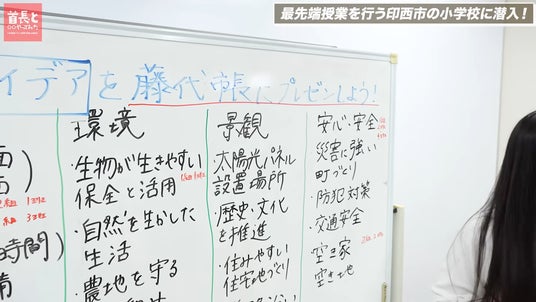 首長と
最先端授業を行う印西市の小学校に潜入!
イデアを藤代市長にプレゼンしよう!
環境
・生物が生きやすい
保全と活用
・自然を生かした
生活
・農地を守る
景観
・太陽光パネル
設置場所
・歴史・文化
を推進
・住みやすい
住宅地づくり
安心・安全
・災害に強い
町づくり
・防犯対策
・交通安全
・空き家
空き地
画)
画)
組 1班
組 3班
時間)
備